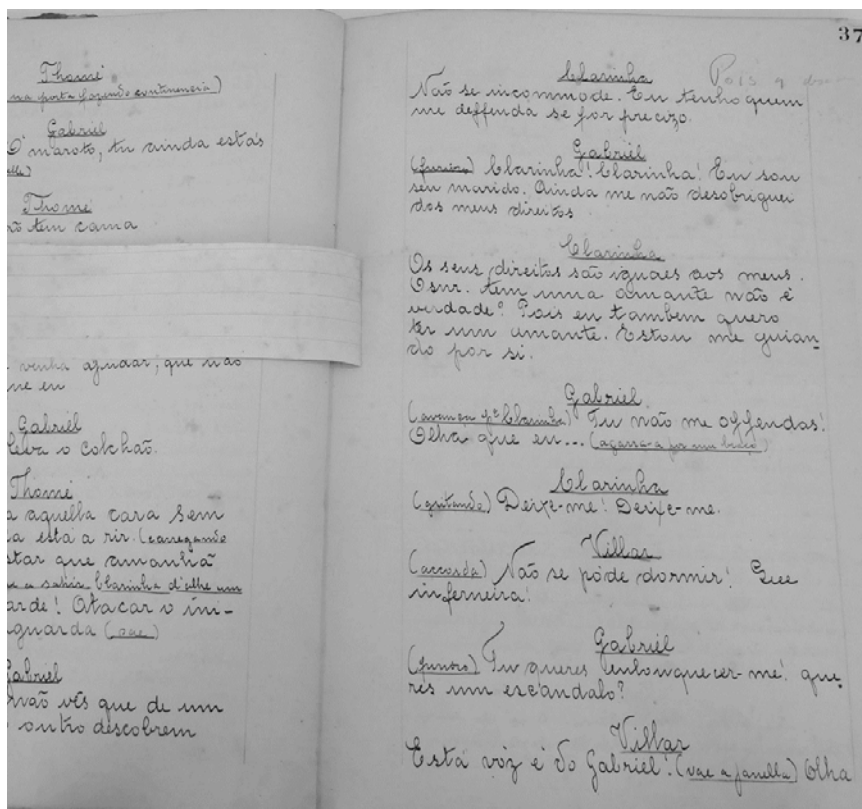 Thomé
na porta fazendo continencia)
Gabriel
O' maroto, tu ainda estás
elle)
Thomé
não tem cama
venha ajudar, que não
que eu
Gabriel
leva o colchão.
Thomé
a aquella cara sem
a está a rir. (carregando
star que amanhã
e a sahir Clarinha d'alhe um
arde! Atacar o ini-
guarda (sae)
Gabriel
não vês que de um
o outro descobrem
37
Pois q
Clarinha
Não se incommode. Eu tenho quem
me deffenda se for precizo.
Gabriel
(furioso) Clarinha! Clarinha! Eu sou
seu marido. Ainda me não desobriguei
dos meus direitos
Clarinha
Os seus direitos são iguaes aos meus.
O snr. tem uma amante não é
verdade? Pois eu tambem quero
ter um amante. Estou me guian-
do por si.
Gabriel
(avança pª Clarinha) Tu não me offendas!
Olha que eu... (agarra-a por um braço)
Clarinha
(gritando) Deixe-me! Deixe-me.
Villar
(accorda) Não se póde dormir! Que
inferneira!
Gabriel
(furioso) Tu queres enlouquecer-me! que-
res um escandalo?
Villar
Esta vóz é do Gabriel! (vae a janella) Olha